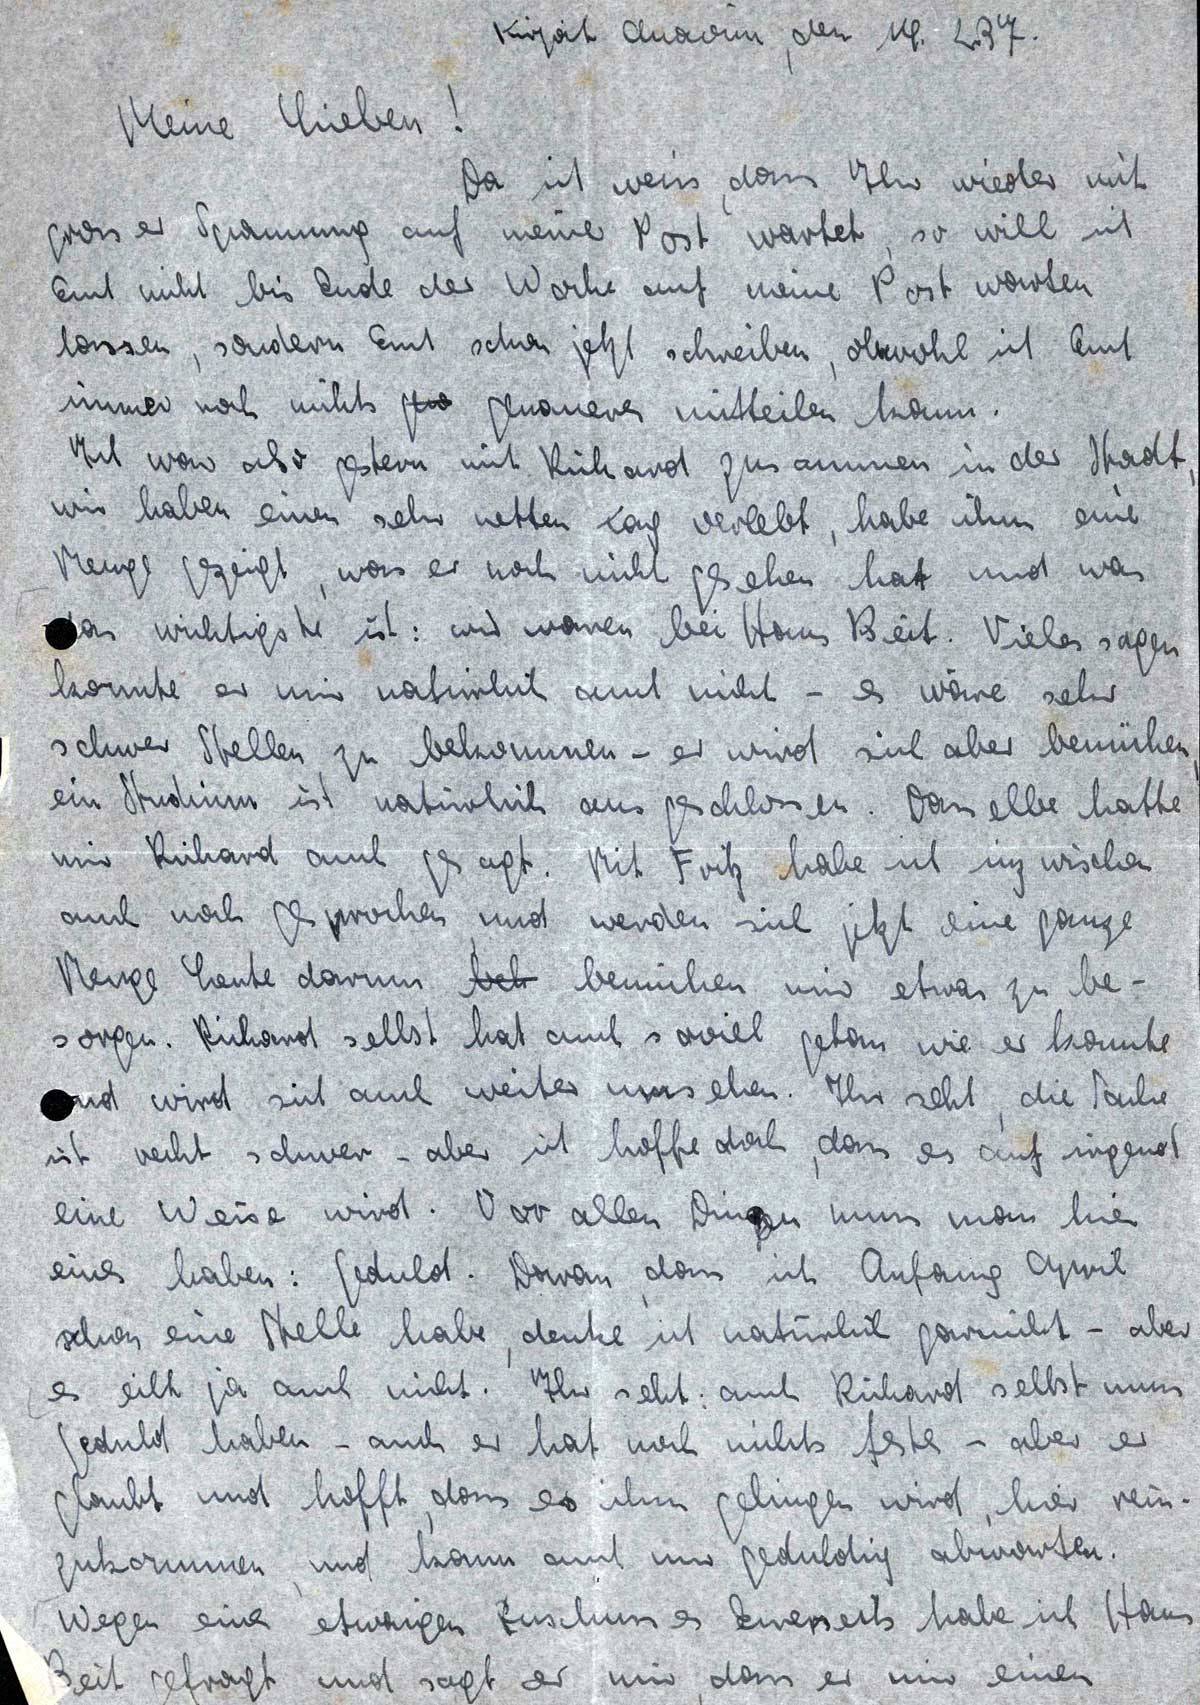 Kirjat Anavim, den 14. 2.37.
Meine Lieben!
Da ich weiss, dass Ihr wieder mit
grosser Spannung auf meine Post wartet, so will ich
Euch nicht bis Ende der Woche auf meine Post warten
lassen, sondern Euch schon jetzt schreiben, obwohl ich Euch
immer noch nichts genaueres mitteilen kann.
Ich war also gestern mit Richard zusammen in der Stadt,
wir haben einen sehr netten Tag verlebt, habe ihm eine
Menge gezeigt, was er noch nicht gesehen hat und was
das wichtigste ist: wir waren bei Hans Beit. Vieles sagen
konnte er mir natürlich auch nicht - es wäre sehr
schwer Stellen zu bekommen - er wird sich aber bemühen,
ein Studium ist natürlich ausgeschlossen. Dasselbe hatte
mir Richard auch gesagt. Mit Fritz habe ich inzwischen
auch noch gesprochen und werden sich jetzt eine ganze
Menge Leute darum beh bemühen mir etwas zu be-
sorgen. Richard selbst hat auch soviel getan wie er konnte
und wird sich auch weiter umsehen. Ihr seht, die Sache
ist recht schwer - aber ich hoffe doch, dass es auf irgend
eine Weise wird. Vor allen Dingen muss man hier
eines haben: Geduld. Daran, dass ich Anfang April
schon eine Stelle habe, denke ich natürlich garnicht - aber
es eilt ja auch nicht. Ihr seht: auch Richard selbst muss
Geduld haben - auch er hat noch nichts festes - aber er
glaubt und hofft, dass es ihm gelingen wird, hier rein-
zukommen, und kann auch nur geduldig abwarten.
Wegen eines etwaigen Zuschusses Euerseits habe ich Hans
Beit gefragt und sagt er mir, dass er mir einen